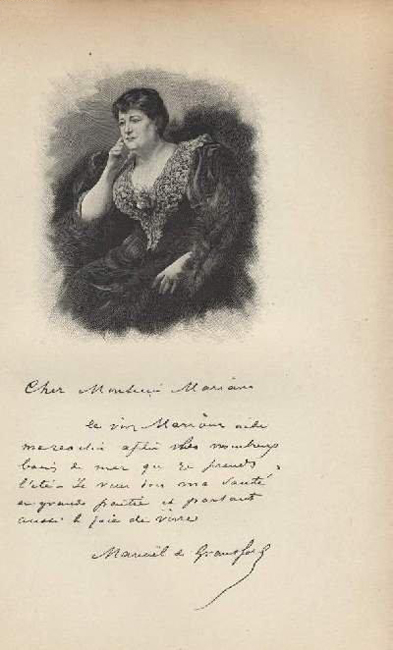 Cher Monsieur Mariani
le vin Mariani aide
ma réaction après les nombreux
bains de mer que je prends
l'été. Je vous dois ma santé
en grande partie et partant
aussi la joie de vivre